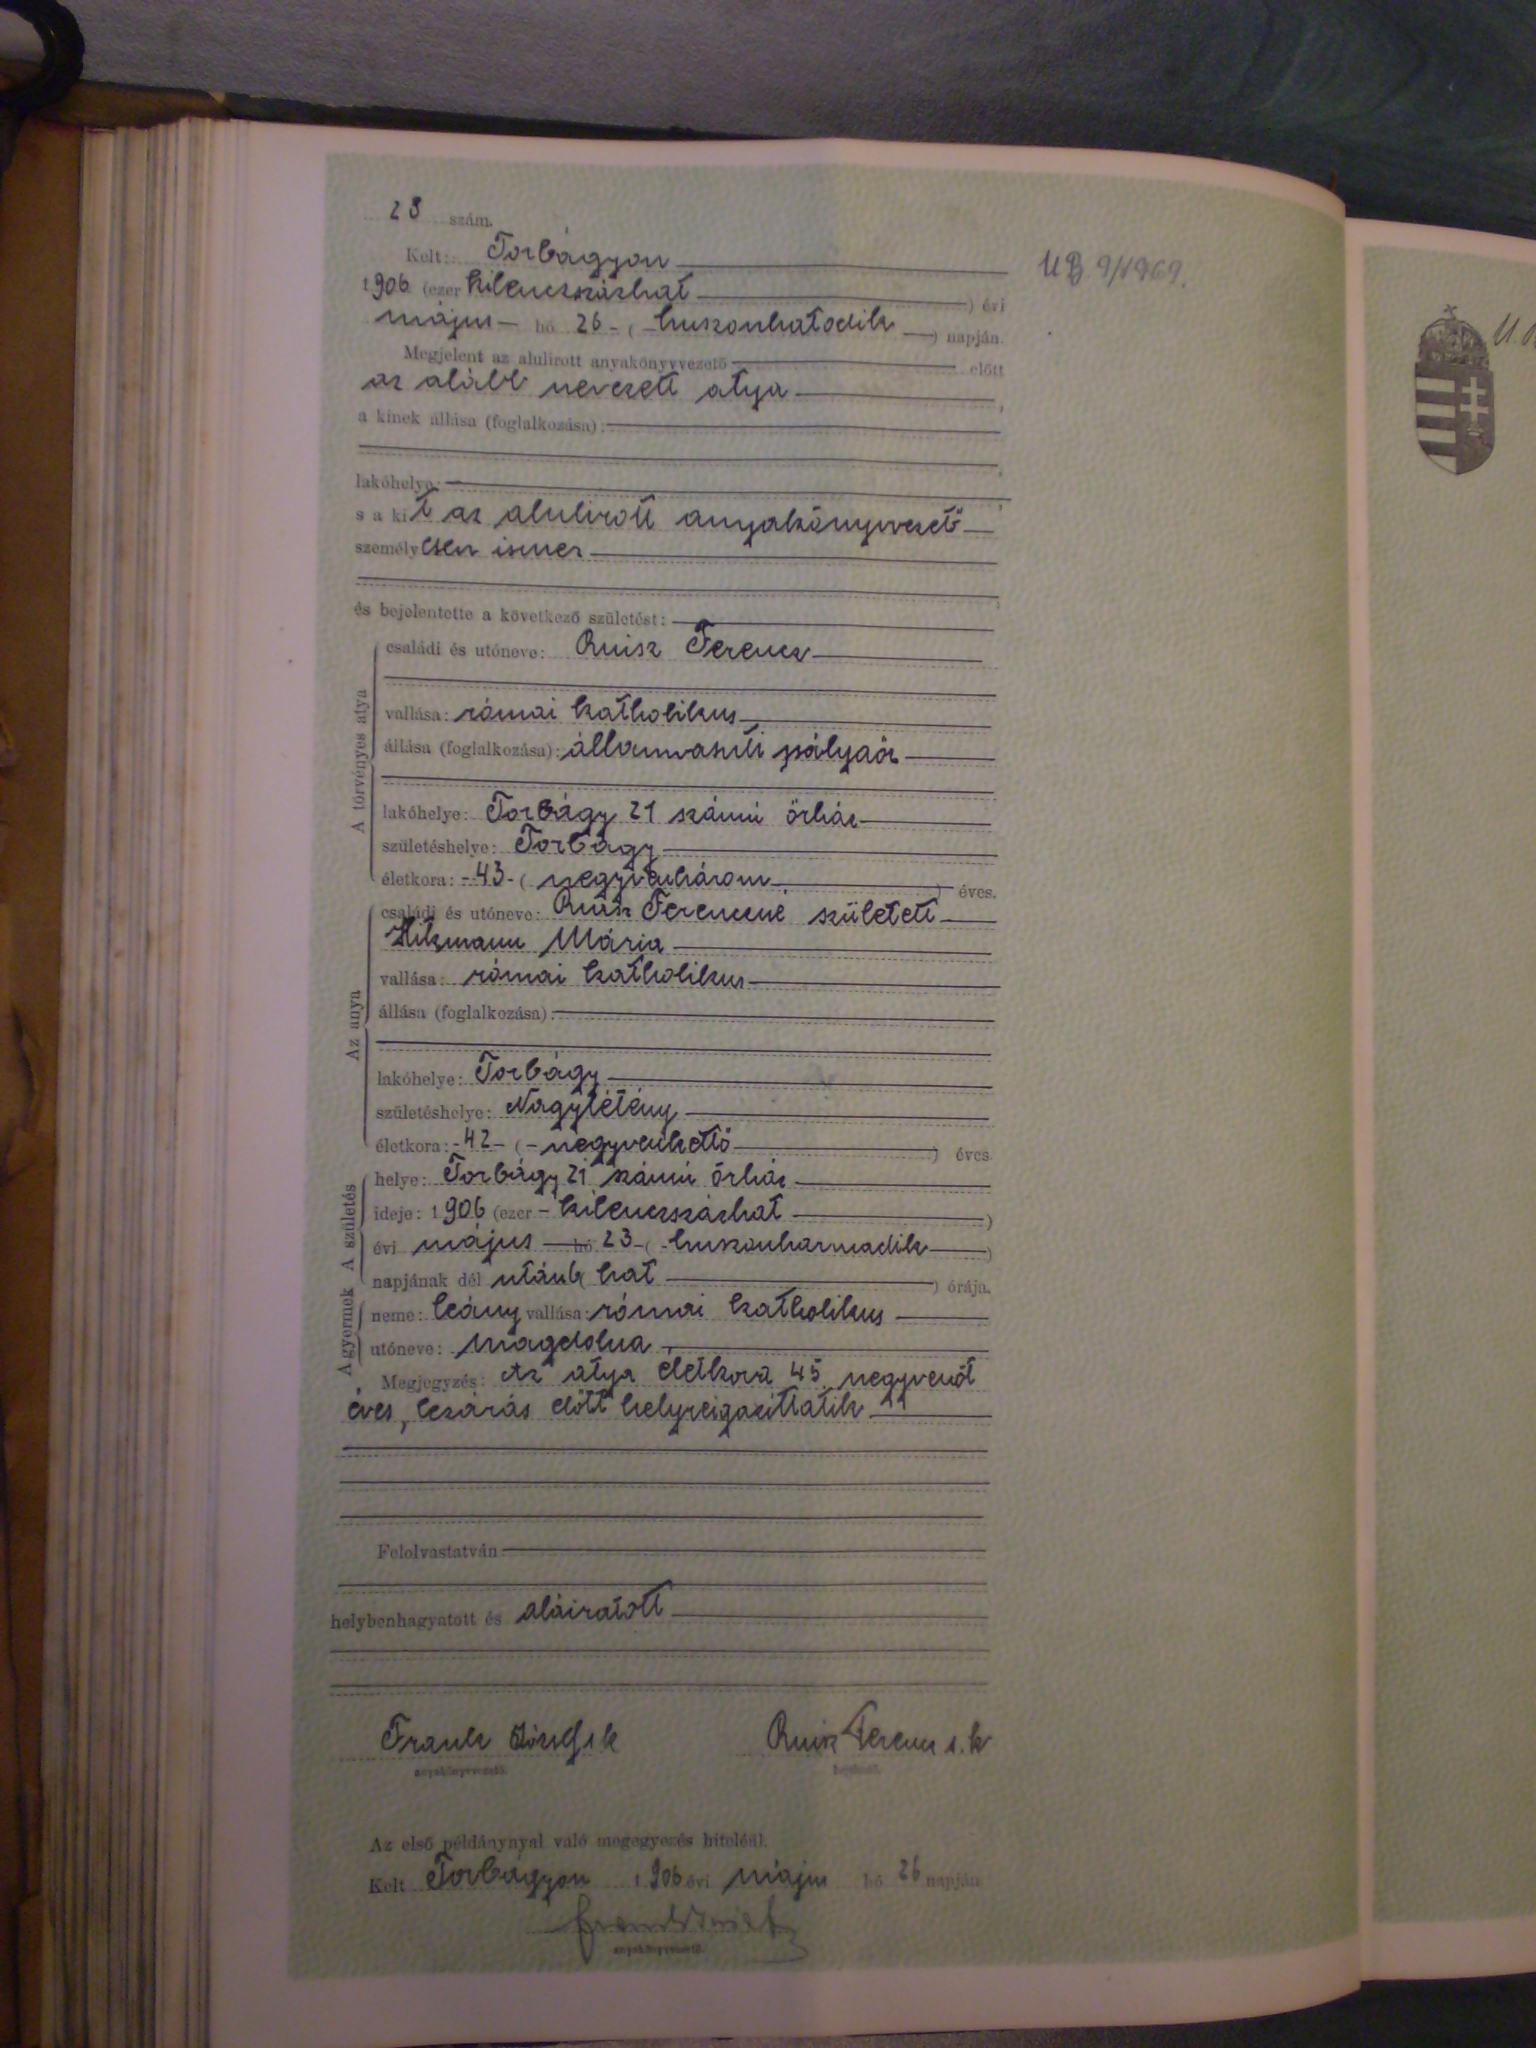 28 szám.
Kelt: Torbágyon
1906 (ezer kilenczszázhat ) évi
május hó 26 - ( - huszonhatodik ) napján.
Megjelent az alulirott anyakönyvvezető előtt
az alább nevezett atya ,
a kinek állása (foglalkozása):
lakóhelye:
s a kit az alulirott anyakönyvvezető
személyesen ismer
és bejelentette a következő születést:
A törvényes atya
családi és utóneve: Ruisz Ferencz
vallása: római katholikus
állása (foglalkozása): államvasúti pályaőr
lakóhelye: Torbágy 21 számú őrház
születéshelye: Torbágy
életkora: - 43 - ( negyvenhárom ) éves.
Az anya
családi és utóneve: Ruisz Ferenczné született
Hitzmann Mária
vallása: római katholikus
állása (foglalkozása):
lakóhelye: Torbágy
születéshelye: Nagytétény
életkora: - 42 - ( - negyvenkettő ) éves.
A születés
helye: Torbágy 21 számú őrház
ideje: 1906 (ezer - kilenczszázhat )
évi május hó 23 - ( - huszonharmadik )
napjának dél utánb hat ) órája.
A gyermek
neme: leány vallása: római katholikus
utóneve: Magdolna
Megjegyzés: Az atya életkora 45 negyvenöt
éves, lezárás előtt helyreigazíttatik
Felolvastatván
helybenhagyatott és aláiratott
Frank József s.k Ruisz Ferencz s.k
anyakönyvvezető. bejelentő.
Az első példánynyal való megegyezés hiteléül.
Kelt Torbágyon 1906 évi május hó 26 napján
anyakönyvvezető.
UB 9/1969.